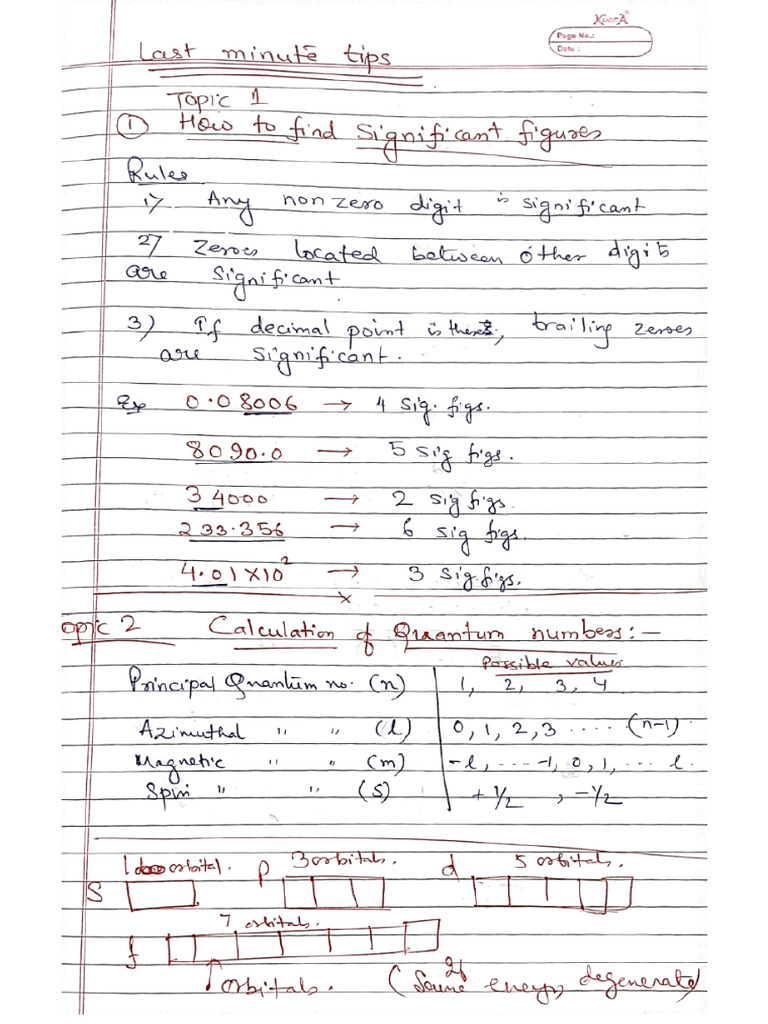 KINGFA
Page No.:
Date :
Last minute tips
Topic 1
① How to find Significant figures
Rules
1) Any non zero digit is significant
2) Zeroes located between other digits
are significant
3) If decimal point is there, trailing zeroes
are significant.
Ex 0.08006 → 4 sig. figs.
8090.0 → 5 sig figs.
34000 → 2 sig figs.
233.356 → 6 sig figs.
4.01×10² → 3 sig figs.
x
opic 2 Calculation of Quantum numbers:—
Possible values
Principal Quantum no. (n) 1, 2, 3, 4
Azimuthal " " (l) 0, 1, 2, 3 .... (n-1)
Magnetic " " (m) -l, ... -1, 0, 1, ... l.
Spin " " (s) +1/2 , -1/2
1 orbital. p 3 orbitals. d 5 orbitals.
S
7 orbitals.
f
orbitals. (Same energy degenerate)